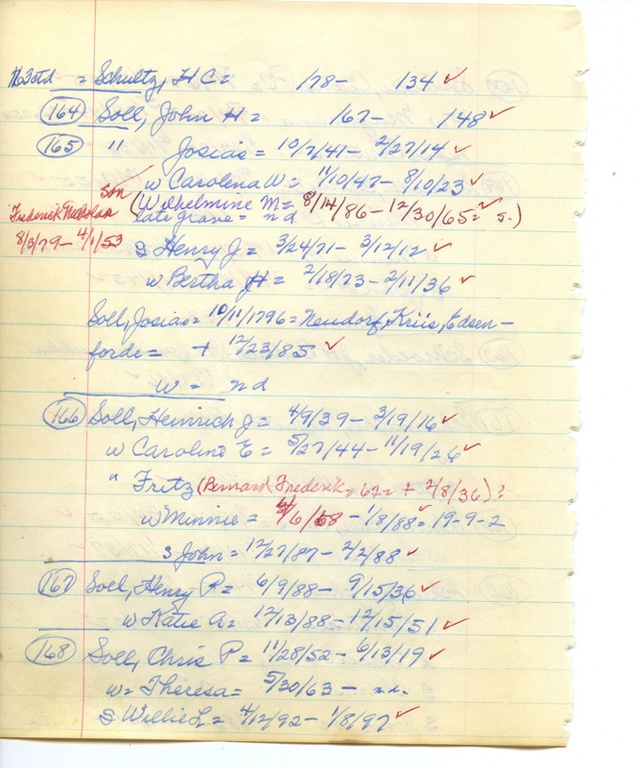 = Schultz, H C = 178 - 134 ✓
(164) Soll, John H = 167 - 148 ✓
(165) " Josias = 10/7/41 - 2/27/14 ✓
w Carolena W = 11/10/47 - 8/10/23 ✓
son (Wilhelmine M = 8/14/86 - 12/30/65 = ✓ s.)
Frederick Nicholas late grave = nd
8/3/79 - 4/1/53 s Henry J = 3/24/71 - 3/12/12 ✓
w Bertha H = 2/18/73 - 2/11/36 ✓
Soll, Josias = 10/11/1796 = Neudorf, Kriis, Edsen-
forde = + 12/23/85 ✓
w = nd
(166) Soll, Heinrich J = 4/9/39 - 3/19/16 ✓
w Caroline E = 5/27/44 - 11/19/26 ✓
" Fritz (Bernard Frederik = 62 = + 2/8/36) ?
w Minnie = /6/68 - 1/8/88 = 19-9-2
s John = 12/27/87 - 2/2/88 ✓
(167) Soll, Henry P = 6/9/88 - 9/15/36 ✓
w Katie A = 12/13/88 - 12/15/51 ✓
(168) Soll, Chris P = 11/28/52 - 6/13/19 ✓
w = Theresa = 5/30/63 - nd.
s Willie L = 4/12/92 - 1/8/97 ✓